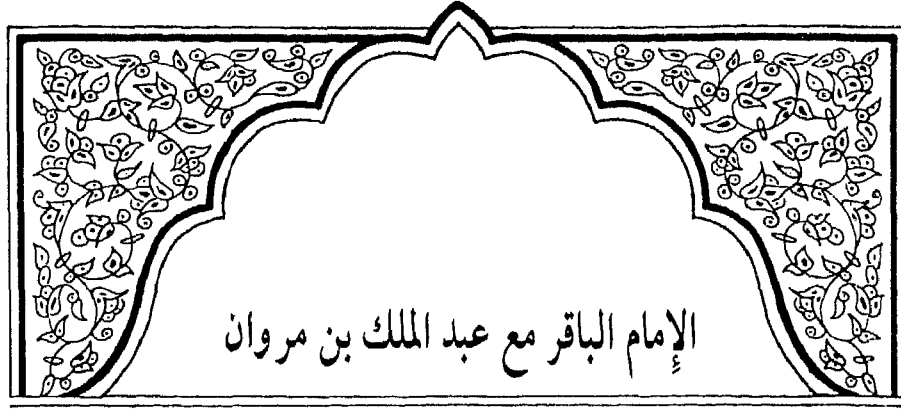 الإِمام الباقر مع عبد الملك بن مروان